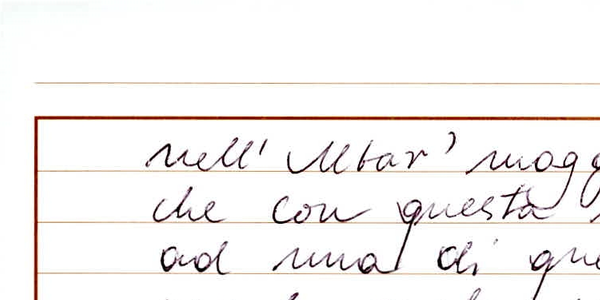 nell' Altar' magg
che con questa
ad una di que